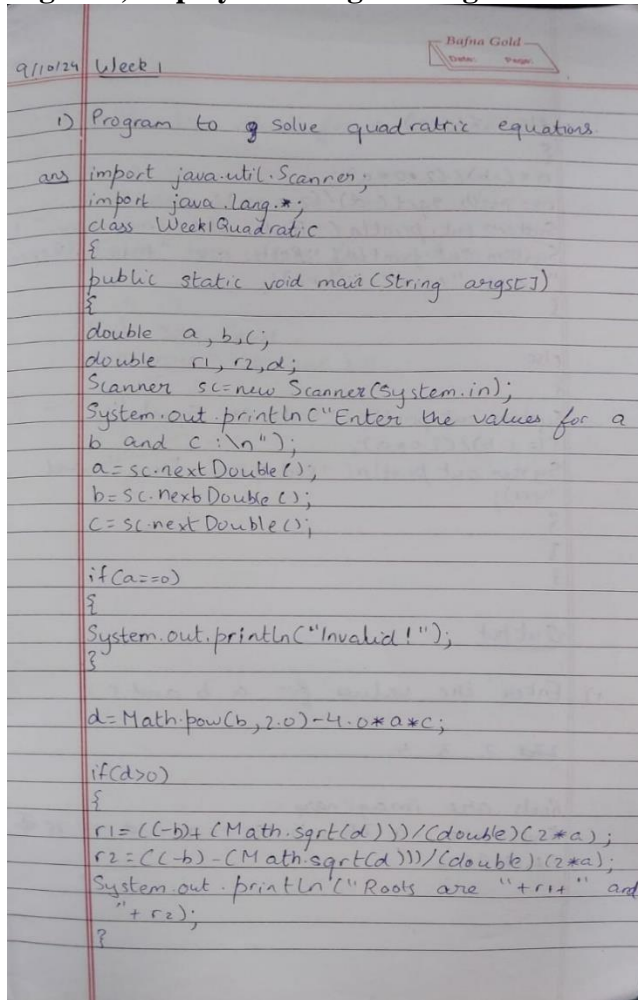 Bafna Gold
Date: Page:
9/10/24 Week 1
1) Program to solve quadratric equations
ans import java.util.Scanner;
import java.lang.*;
class Week1Quadratic
{
public static void main(String args[])
{
double a, b, c;
double r1, r2, d;
Scanner sc=new Scanner(System.in);
System.out.println("Enter the values for a
b and c :\n");
a=sc.nextDouble();
b=sc.nextDouble();
c=sc.nextDouble();
if(a==0)
{
System.out.println("Invalid!");
}
d=Math.pow(b,2.0)-4.0*a*c;
if(d>0)
{
r1=((-b)+(Math.sqrt(d)))/(double)(2*a);
r2=((-b)-(Math.sqrt(d)))/(double)(2*a);
System.out.println("Roots are "+r1+" and
"+r2);
}